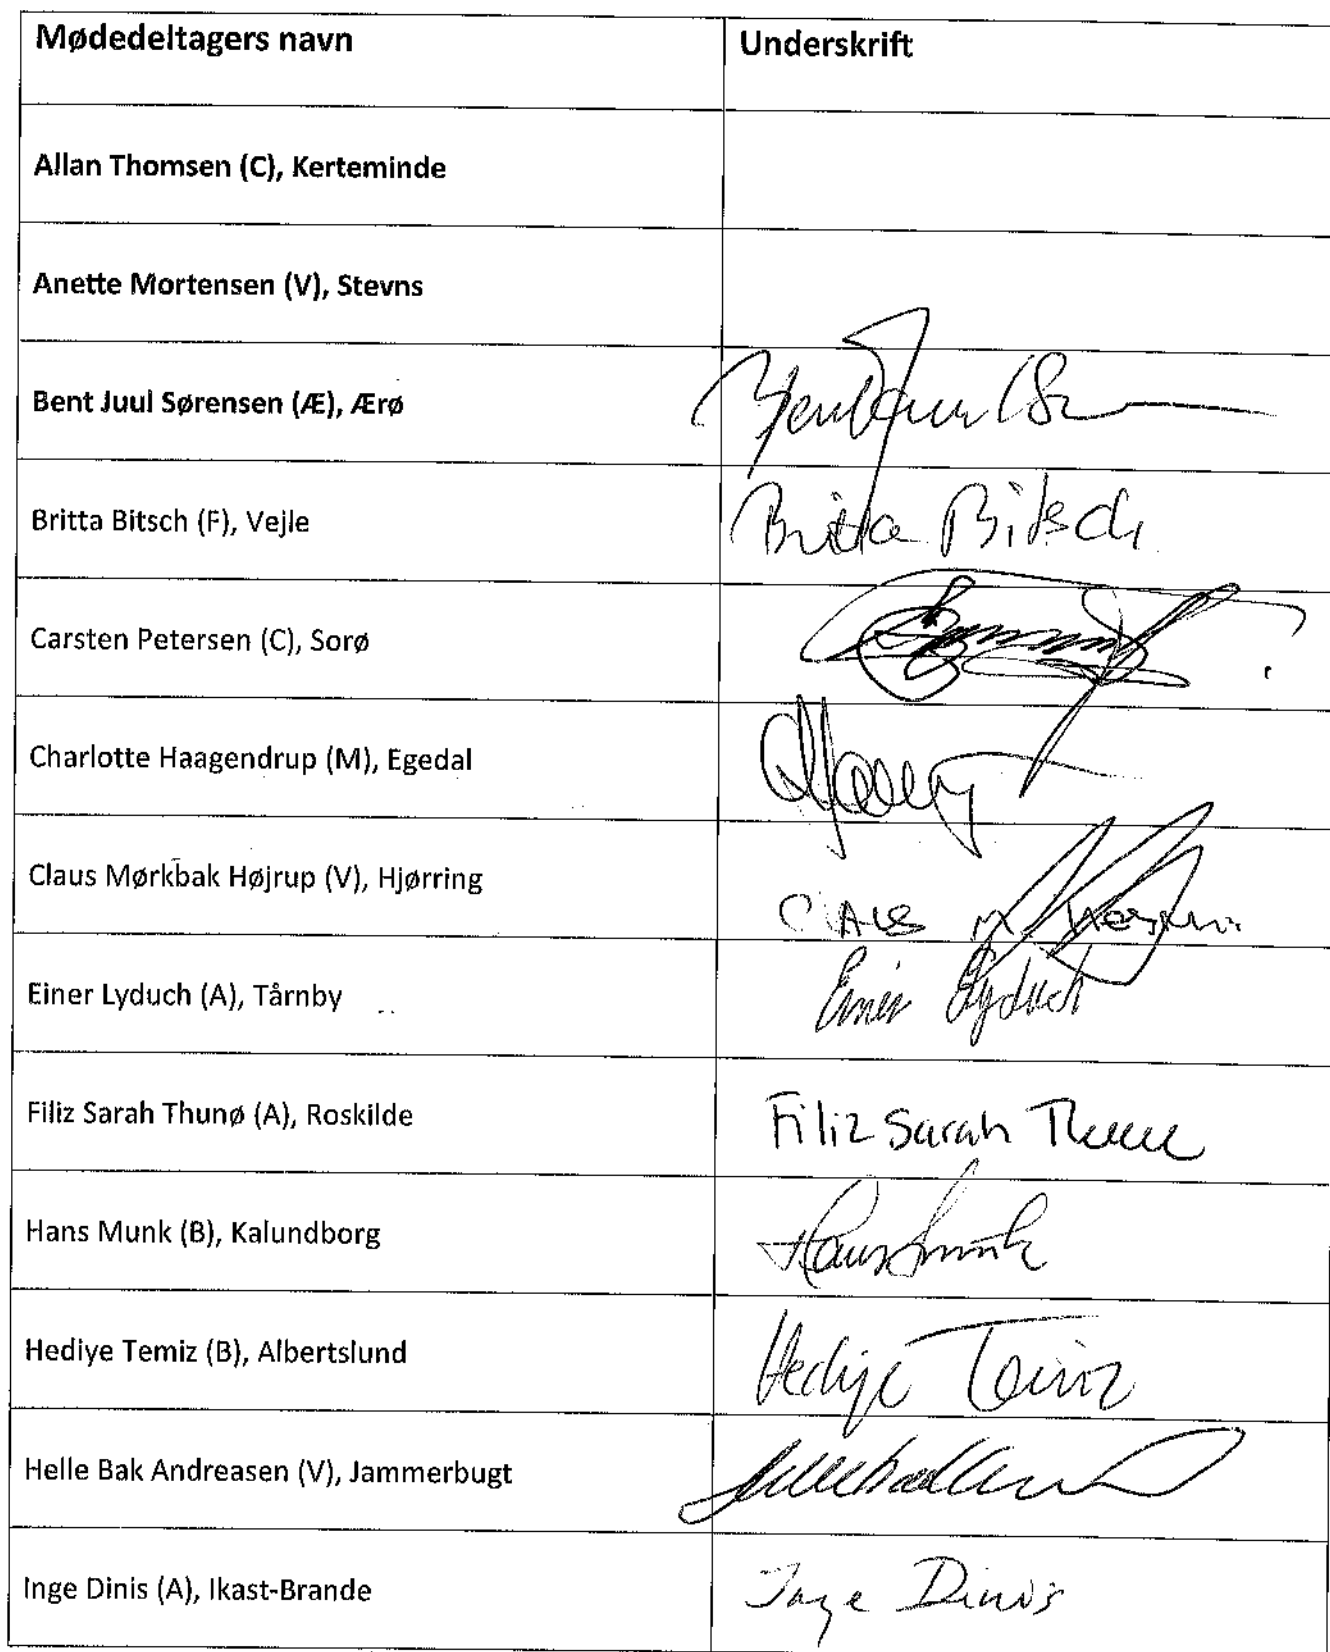 Mødedeltagers navn Underskrift
Allan Thomsen (C), Kerteminde
Anette Mortensen (V), Stevns
Bent Juul Sørensen (Æ), Ærø
Britta Bitsch (F), Vejle Britta Bitsch
Carsten Petersen (C), Sorø
Charlotte Haagendrup (M), Egedal
Claus Mørkbak Højrup (V), Hjørring Claus M
Einer Lyduch (A), Tårnby Einer Lyduch
Filiz Sarah Thunø (A), Roskilde Filiz Sarah
Hans Munk (B), Kalundborg Hans Munk
Hediye Temiz (B), Albertslund Hediye Temiz
Helle Bak Andreasen (V), Jammerbugt
Inge Dinis (A), Ikast-Brande Inge Dinis